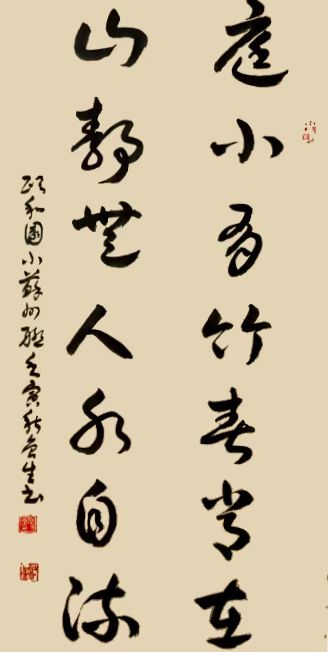 庭小有竹春常在
山靜無人水自流
頤和園小蘇州聯壬寅秋生书